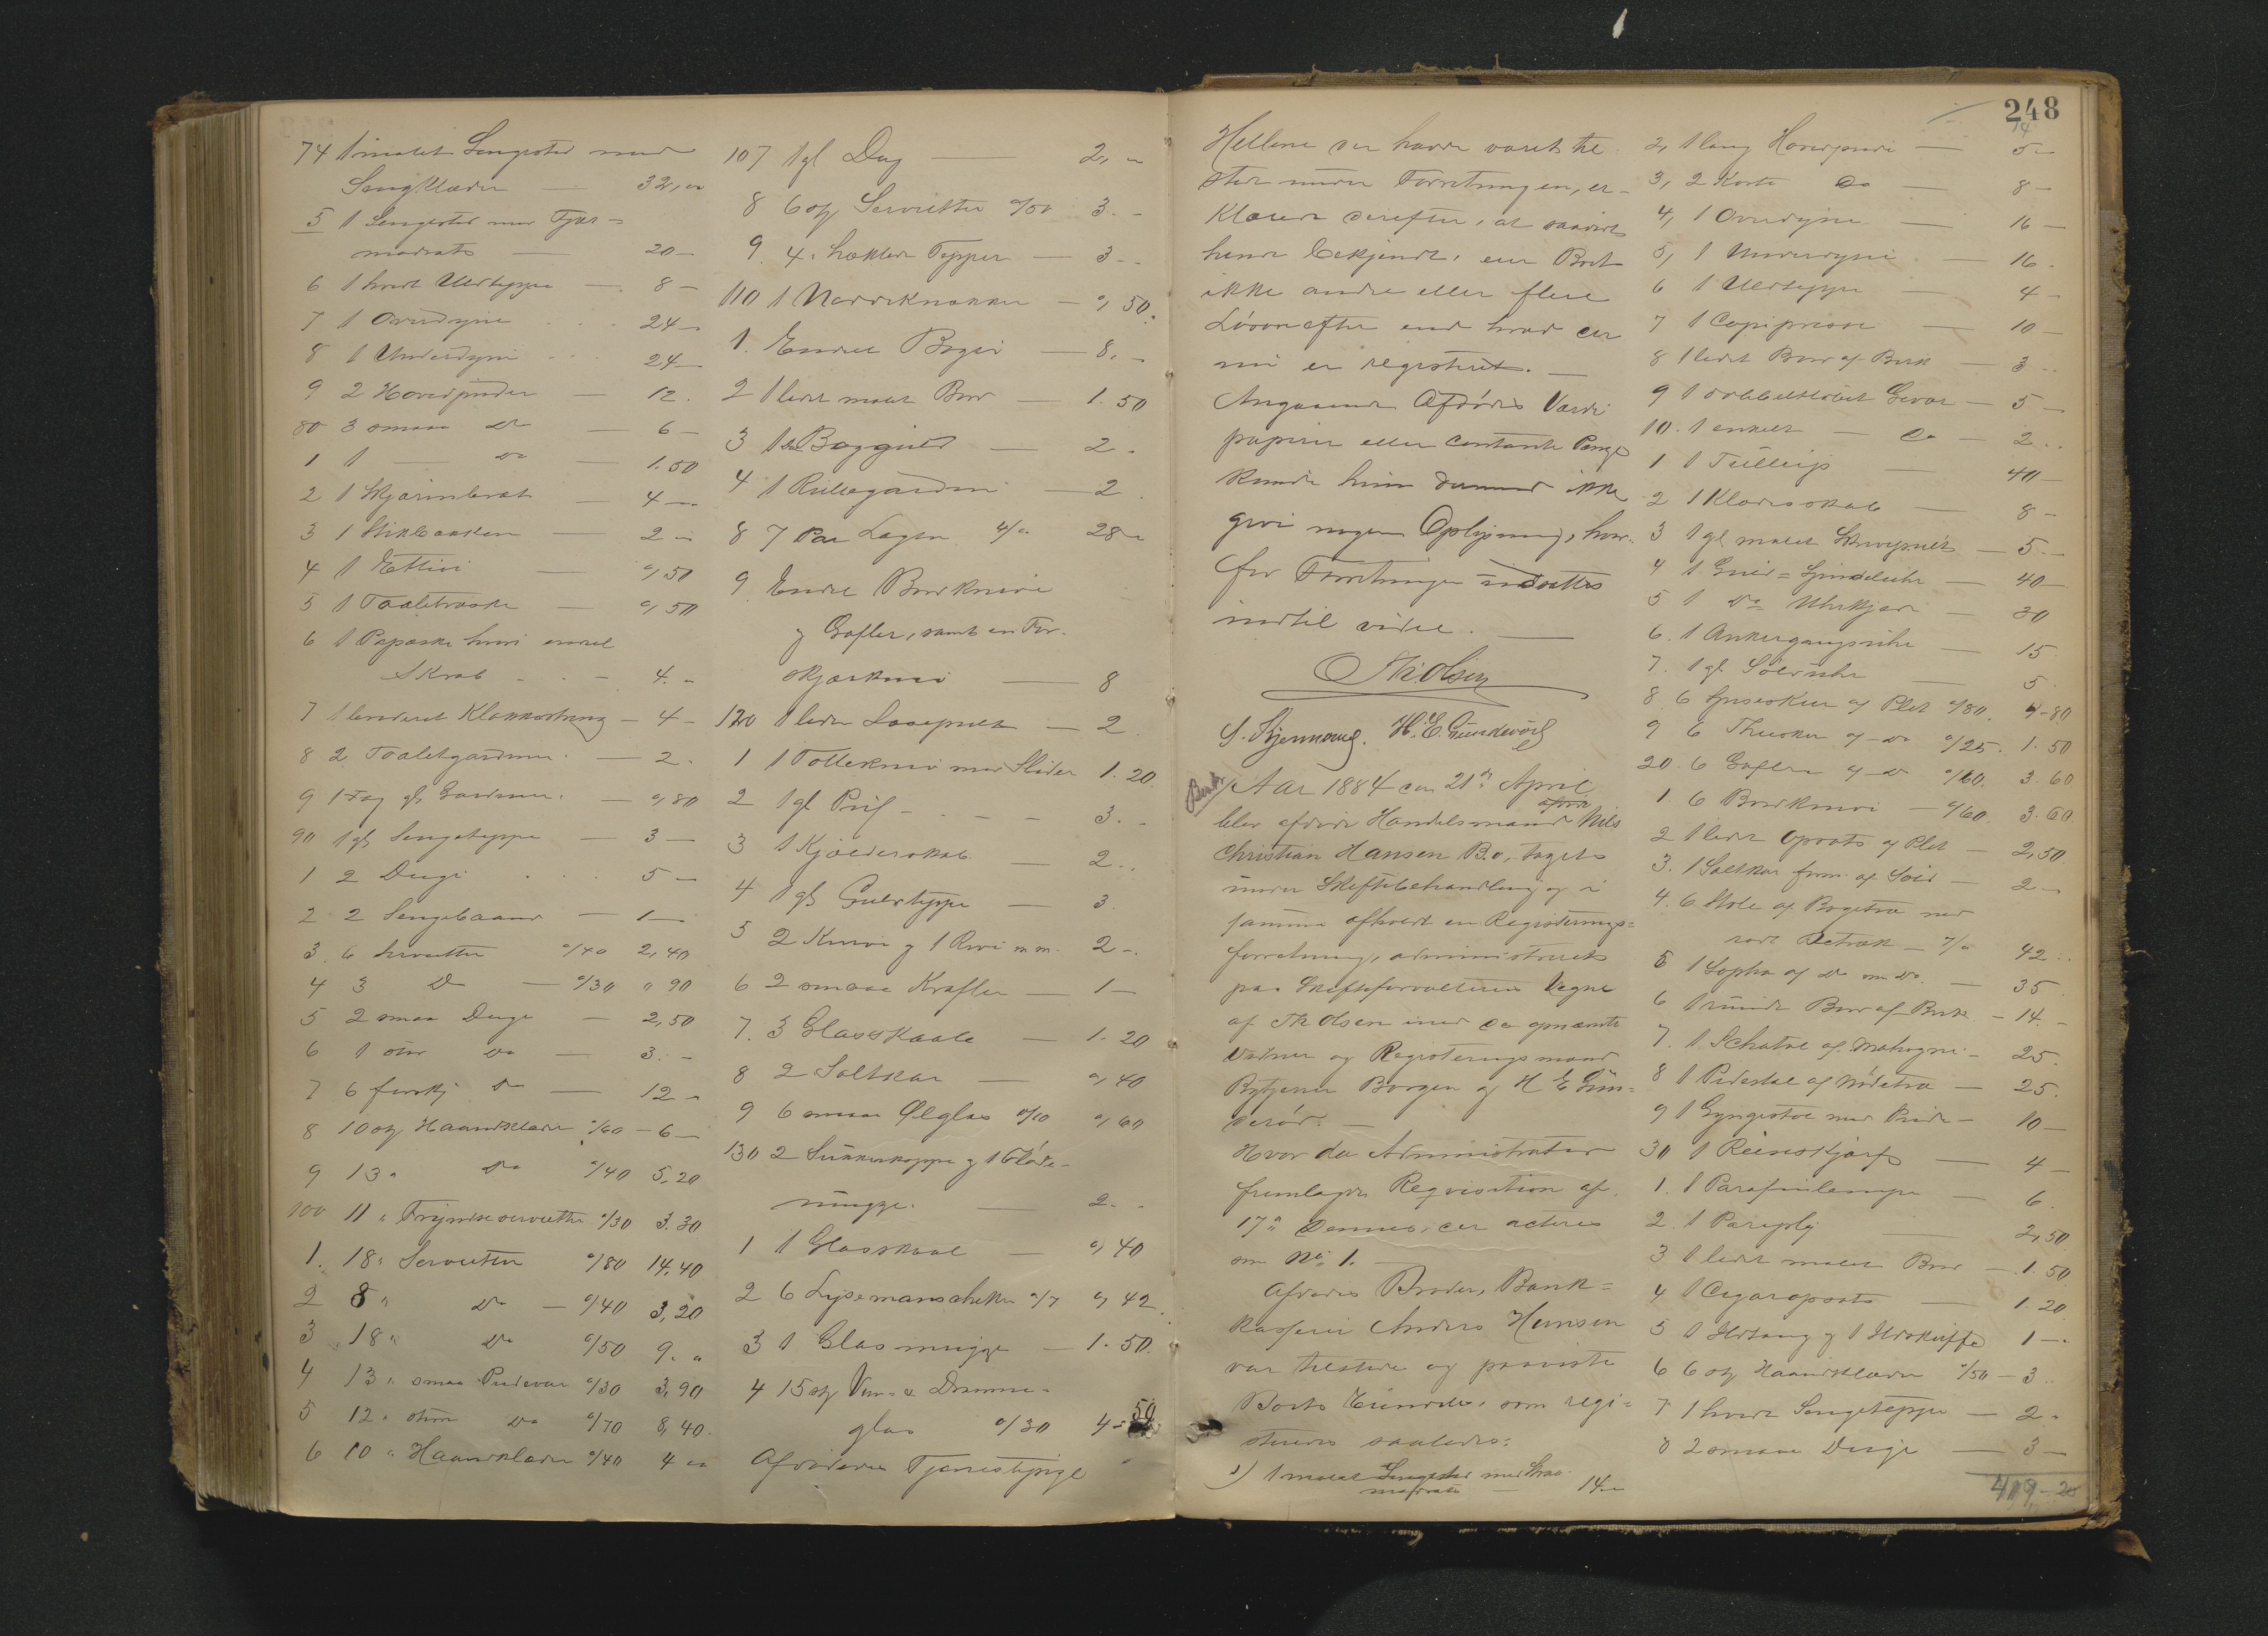 74 1 malet Sengested med
Sengklæder — 32,"
5 1 Sengested med
madrats — 20 —
6 1 hvidt Uldteppe — 8 —
7 1 Overdyne . . . 24 —
8 1 Underdyne . . . 24 —
9 2 Hovedpuder — 12 .
80 3 smaa Do — 6 —
1 1 — Do — 1.50
2 1 Skjærmbræt — 4 —
3 1 — 2 —
4 1 Ettui — ",50
5 1 Toiletæske — ",50
6 1 Papæske hvori endel
Skrab - - - 4. "
7 1 broderet Klokkestreng — 4 —
8 2 Toiletgardiner . — 2 .
9 1 Fag gl. Gardiner . — ",80
90 1 gl Sengeteppe — 3 —
1 2 Duge . . . 5 —
2 2 Sengebaand — 1 —
3 6 Servietter "/40 2,40
4 3 Do — "/30 " 90
5 2 smaa Duge — 2,50
6 1 stor Do — 3. -
7 6 forskj Do — 12 -
8 10 stk Haandklæder "/60 - 6 —
9 13 " Do "/40 5,20
100 11 " servietter "/30 3.30
1. 18 " Servietter "/80 14.40
2 8 " Do — "/40 3,20
3 18 " Do "/50 9. "
4 13 " smaa Pudevar "/30 3,90
5 12 " store Do "/70 8,40.
6 10 " Haandklæder "/40 4 "
107 1 gl Dug — 2, "
8 6 stk Servietter "/50 3. -
9. 4 " heklede Tepper — 3 - -
110 1 Nøddeknækker — ", 50.
1. Endel Bøger — 8. -
2 1 lidet malet Bord — 1. 50
3 1 — 2 .
4 1 Rullegardin — 2 .
8 7 Par Lagen 4/" 28 "
9 Endel Bordknive
og Gafler, samt en For-
skjærkniv — 8
120 1 liden Læsepult — 2 .
1 1 Tollekniv med Slider 1. 20
2 1 gl — 3. -
3 1 Kjælderskab — 2 . .
4 1 gl Gulvteppe — 3.
5 2 Kurve og 1 Rive m.m. 2 - .
6 2 smaa Krafler — 1 —
7. 3 Glasskaale — 1. 20
8 2 Saltkar — ", 40
9 6 smaa Ølglas "/10 ", 60
130 2 Sukkerkopper og 1 Fløde-
mugge. — 2. -
1 1 Glasskaal — ", 40
2 6 Lysemanschetter "/7 ", 42.
3 1 Glasmugge — 1. 50.
4 15 stk Vin- & Dramme-
glas "/30 4 - 50
Afdødes Tjenestepige
248
Hellene der havde været til
stede under Forretningen, er-
klærede derefter, at saavidt
hende bekjendt, eier Boet
ikke andre eller flere
Løsøreefter end hvad der
nu er registreret. —
Angaaende Afdødes Værdi
papirer eller contante Penge
kunde hun derimod ikke
give nogen Oplysning, hvor-
for Forretningen udsattes
indtil videre. —
Th Olsen
S. Bjerknæs. H. E. Gunderød
Aar 1884 den 21de April
blev afdøde Handelsmand Nils
Christian Hansen Bo, taget
under Skiftebehandling og i
samme afholdt en Registrerings-
forretning, administreret
paa Skifteforvalterens Vegne
af Th Olsen med de opnævnte
Vidner og Registreringsmænd
Bytjener Borgen og H E Gun-
derød. —
Hvor da Administrator
fremlagde Requisition af
17de dennes, der acteres
om No 1. —
Afdødes Broder, Bank-
kasserer Anders Hansen
var tilstede og paaviste
Boets Eiendele, som regi-
streredes saaledes:
1) 1 malet Sengested med Straa-
madrats — 14 "
2, 1 lang Hovedpude — 5 —
3, 2 korte Do — 8 —
4, 1 Overdyne — 16 —
5, 1 Underdyne — 16 .
6 1 Uldteppe — 4 -
7 1 Copipresse — 10 —
8 1 lidet Bord af Birk — 3 . .
9 1 dobbeltløbet Gevær — 5 —
10. 1 enkelt — Do — 2 . .
1 1 Pulleip — 40 —
2 1 Klædesskab — 8 -
3 1 gl malet Skrivepult — 5 - —
4 1 Guld - — 40 —
5 1 Do Uhrkjæde — 30
6. 1 Ankergangsuhr — 15
7. 1 gl. Sølvuhr — 5
8 6 Spiseskeer af Plet "/80. 4 - 80
9 6 Theskeer af Do "/25. 1. 50
20. 6 Gafler af Do "/60. 3. 60
1. 6 Bordknive — "/60. 3. 60
2 1 lidet Opsats af Plet — 2,50
3. 1 Saltkar af Sølv — 2 -
4. 6 Stole af Bøgetræ med
rødt Betræk — 7/" 42 : .
5 1 Sopha af Do m Do. — 35
6 1 rundt Bord af Birk. — 14. -
7. 1 Schatol af Mahogni - 25
8 1 Pidestal af Nødetræ — 25.
9 1 Gyngestol med Pude — 10 —
30 1 Reiseskjærf — 4 —
1. 1 Parafinlampe — 6
2. 1 Paraply — 2,50
3 1 lidet malet Bord — 1. 50
4 1 Cigaropsats — 1. 20
5 1 Ildtang og 1 Ildskuffe 1 — .
6 6 stk Haandklæder "/50 — 3 . .
7 1 hvidt Sengeteppe — 2 .
8 2 smaa Duge — 3 —
419 - 20